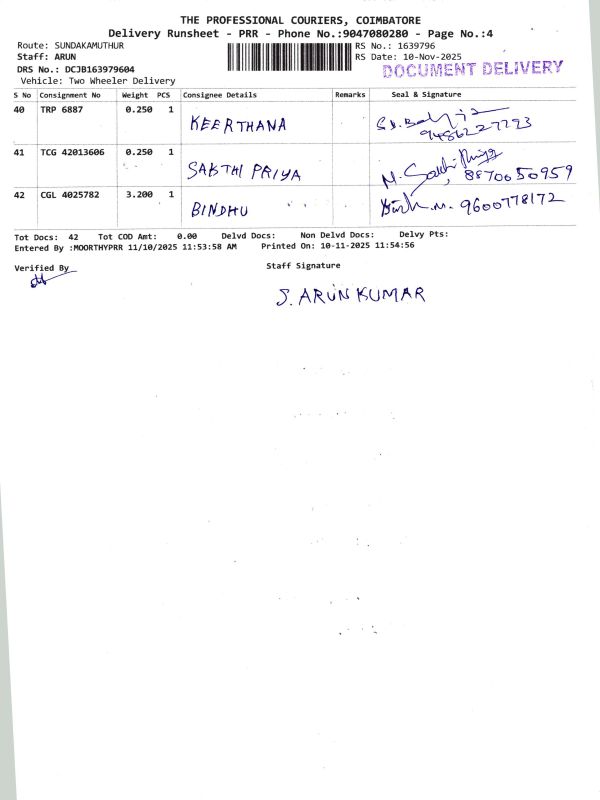 THE PROFESSIONAL COURIERS, COIMBATORE
Delivery Runsheet - PRR - Phone No.:9047080280 - Page No.:4
Route: SUNDAKAMUTHUR
RS No.: 1639796
Staff: ARUN
RS Date: 10-Nov-2025
DRS No.: DCJB163979604
DOCUMENT DELIVERY
Vehicle: Two Wheeler Delivery
S No Consignment No Weight PCS Consignee Details Remarks Seal & Signature
40 TRP 6887 0.250 1 KEERTHANA
9486227723
41 TCG 42013606 0.250 1 SAKTHI PRIYA M. Sakthi Priya
8870050959
42 CGL 4025782 3.200 1 BINDHU 9600778172
Tot Docs: 42 Tot COD Amt: 0.00 Delvd Docs: Non Delvd Docs: Delvy Pts:
Entered By :MOORTHYPRR 11/10/2025 11:53:58 AM Printed On: 10-11-2025 11:54:56
Verified By Staff Signature
S. ARUN KUMAR